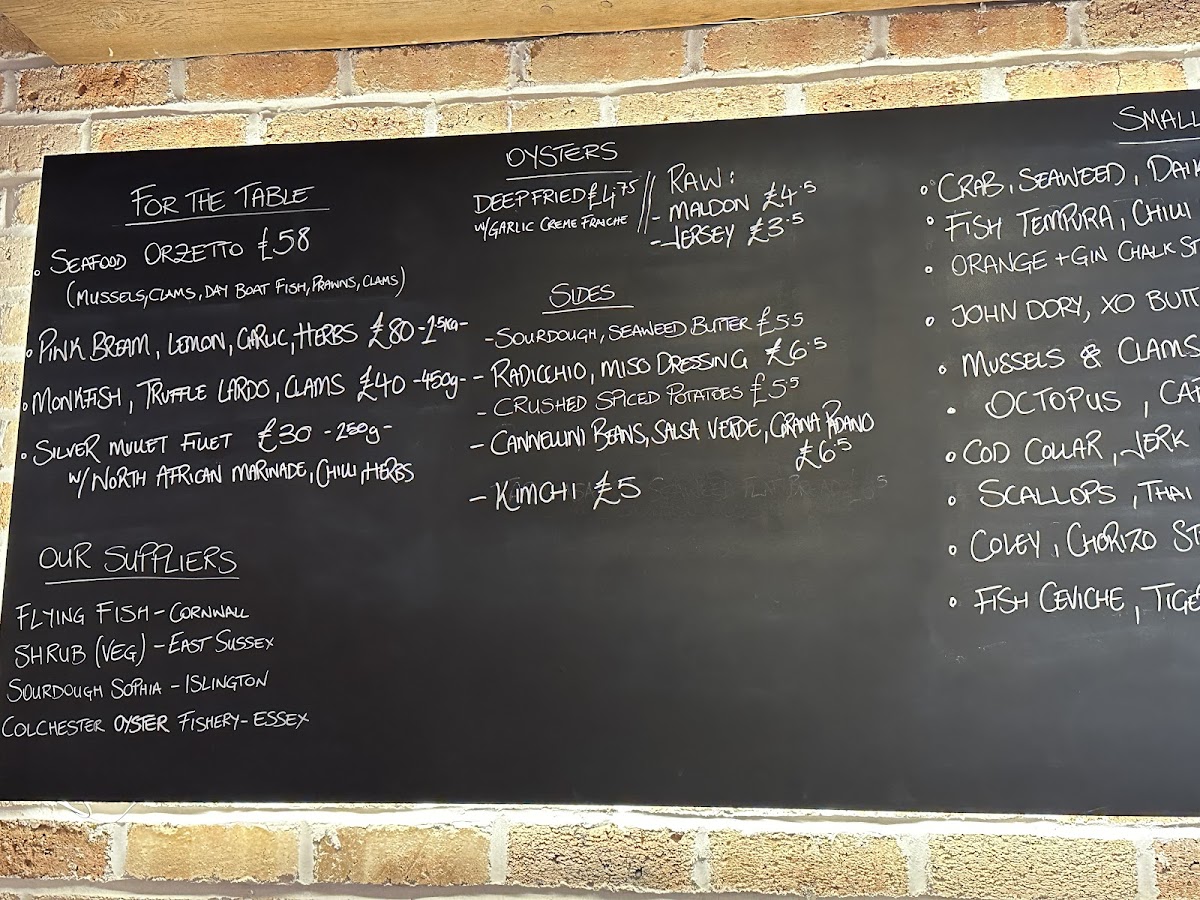 FOR THE TABLE
SEAFOOD ORZETTO £58
(MUSSELS, CLAMS, DAY BOAT FISH, PRAWNS, CLAMS)
PINK BREAM, LEMON, GARLIC, HERBS £80 -1.5KG-
MONKFISH, TRUFFLE LARDO, CLAMS £40 -450g-
SILVER MULLET FILET £30 -250g-
W/ NORTH AFRICAN MARINADE, CHILLI, HERBS
OUR SUPPLIERS
FLYING FISH - CORNWALL
SHRUB (VEG) - EAST SUSSEX
SOURDOUGH SOPHIA - ISLINGTON
COLCHESTER OYSTER FISHERY - ESSEX
OYSTERS
DEEP FRIED £4.75
W/ GARLIC CREME FRAICHE
RAW:
- MALDON £4.5
- JERSEY £3.5
SIDES
- SOURDOUGH, SEAWEED BUTTER £5.5
- RADICCHIO, MISO DRESSING £6.5
- CRUSHED SPICED POTATOES £5.5
- CANNELLINI BEANS, SALSA VERDE, GRANA PADANO
£6.5
- KIMCHI £5
SMALL
CRAB, SEAWEED, DAIK
FISH TEMPURA, CHILLI
ORANGE + GIN CHALK ST
JOHN DORY, XO BUTT
MUSSELS & CLAMS
OCTOPUS, CA
COD COLLAR, JERK
SCALLOPS, THAI
COLEY, CHORIZO ST
FISH CEVICHE, TIGE